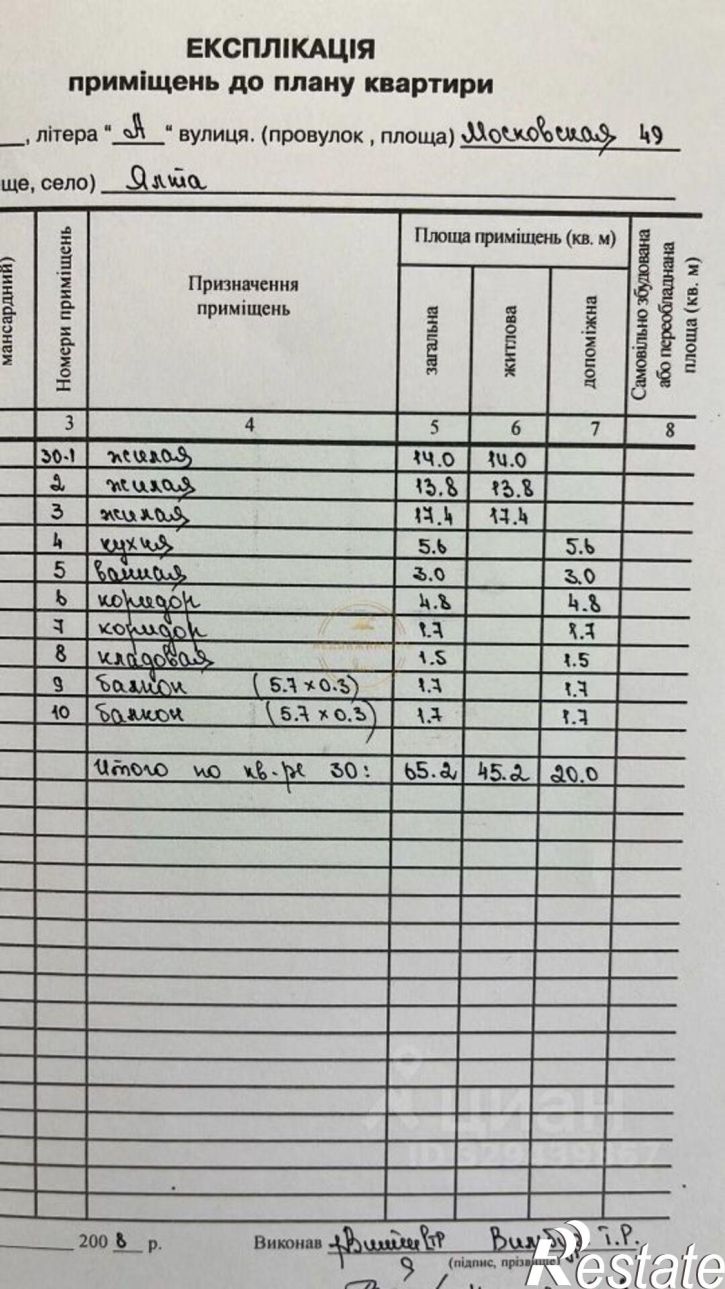 ЕКСПЛІКАЦІЯ
приміщень до плану квартири
, літера "А" вулиця. (провулок , площа) Московская 49
ще, село) Ялта
мансардний)
Номери приміщень
Призначення
приміщень
Площа приміщень (кв. м)
загальна
житлова
допоміжна
Самовільно збудована
або переобладнана
площа (кв. м)
3 4 5 6 7 8
30-1 жилая 14.0 14.0
2 жилая 13.8 13.8
3 жилая 17.4 17.4
4 кухня 5.6 5.6
5 ванная 3.0 3.0
6 коридор 4.8 4.8
7 коридор 1.7 1.7
8 кладовая 1.5 1.5
9 балкон (5.7 x 0.3) 1.7 1.7
10 балкон (5.7 x 0.3) 1.7 1.7
Итого по кв-ре 30: 65.2 45.2 20.0
циан
2008 р. Виконав Т.Р.
(підпис, прізвище)
Restate